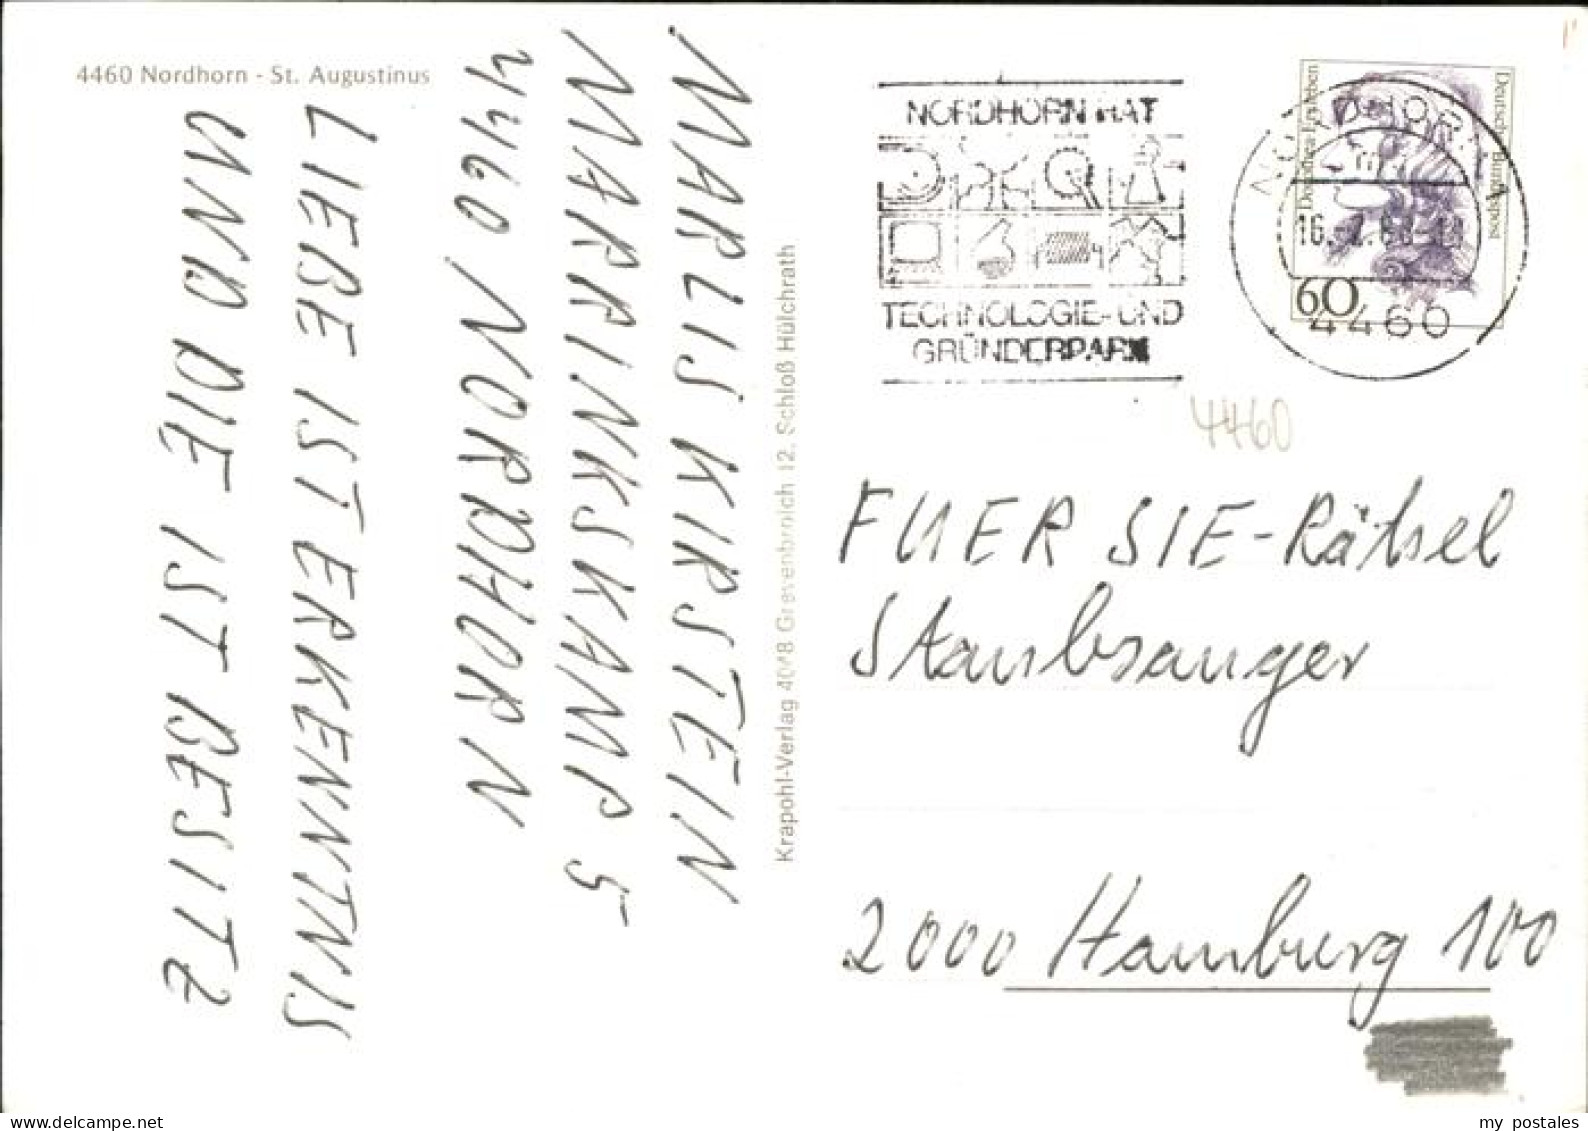 4460 Nordhorn - St. Augustinus
MARLIS KIRSTEIN
MARRINKSKAMP 5
4460 NORDHORN
LIEBE IST ERKENNTNIS
UND DIE IST BESITZ
Krapohl-Verlag 4048 Grevenbroich 12, Schloß Hülchrath
NORDHORN HAT
TECHNOLOGIE- UND
GRÜNDERPARK
Dorothea Erxleben
Deutsche Bundespost
60
NORDHORN
4460
4460
FUER SIE-Rätsel
Staubsauger
2000 Hamburg 100
my postales